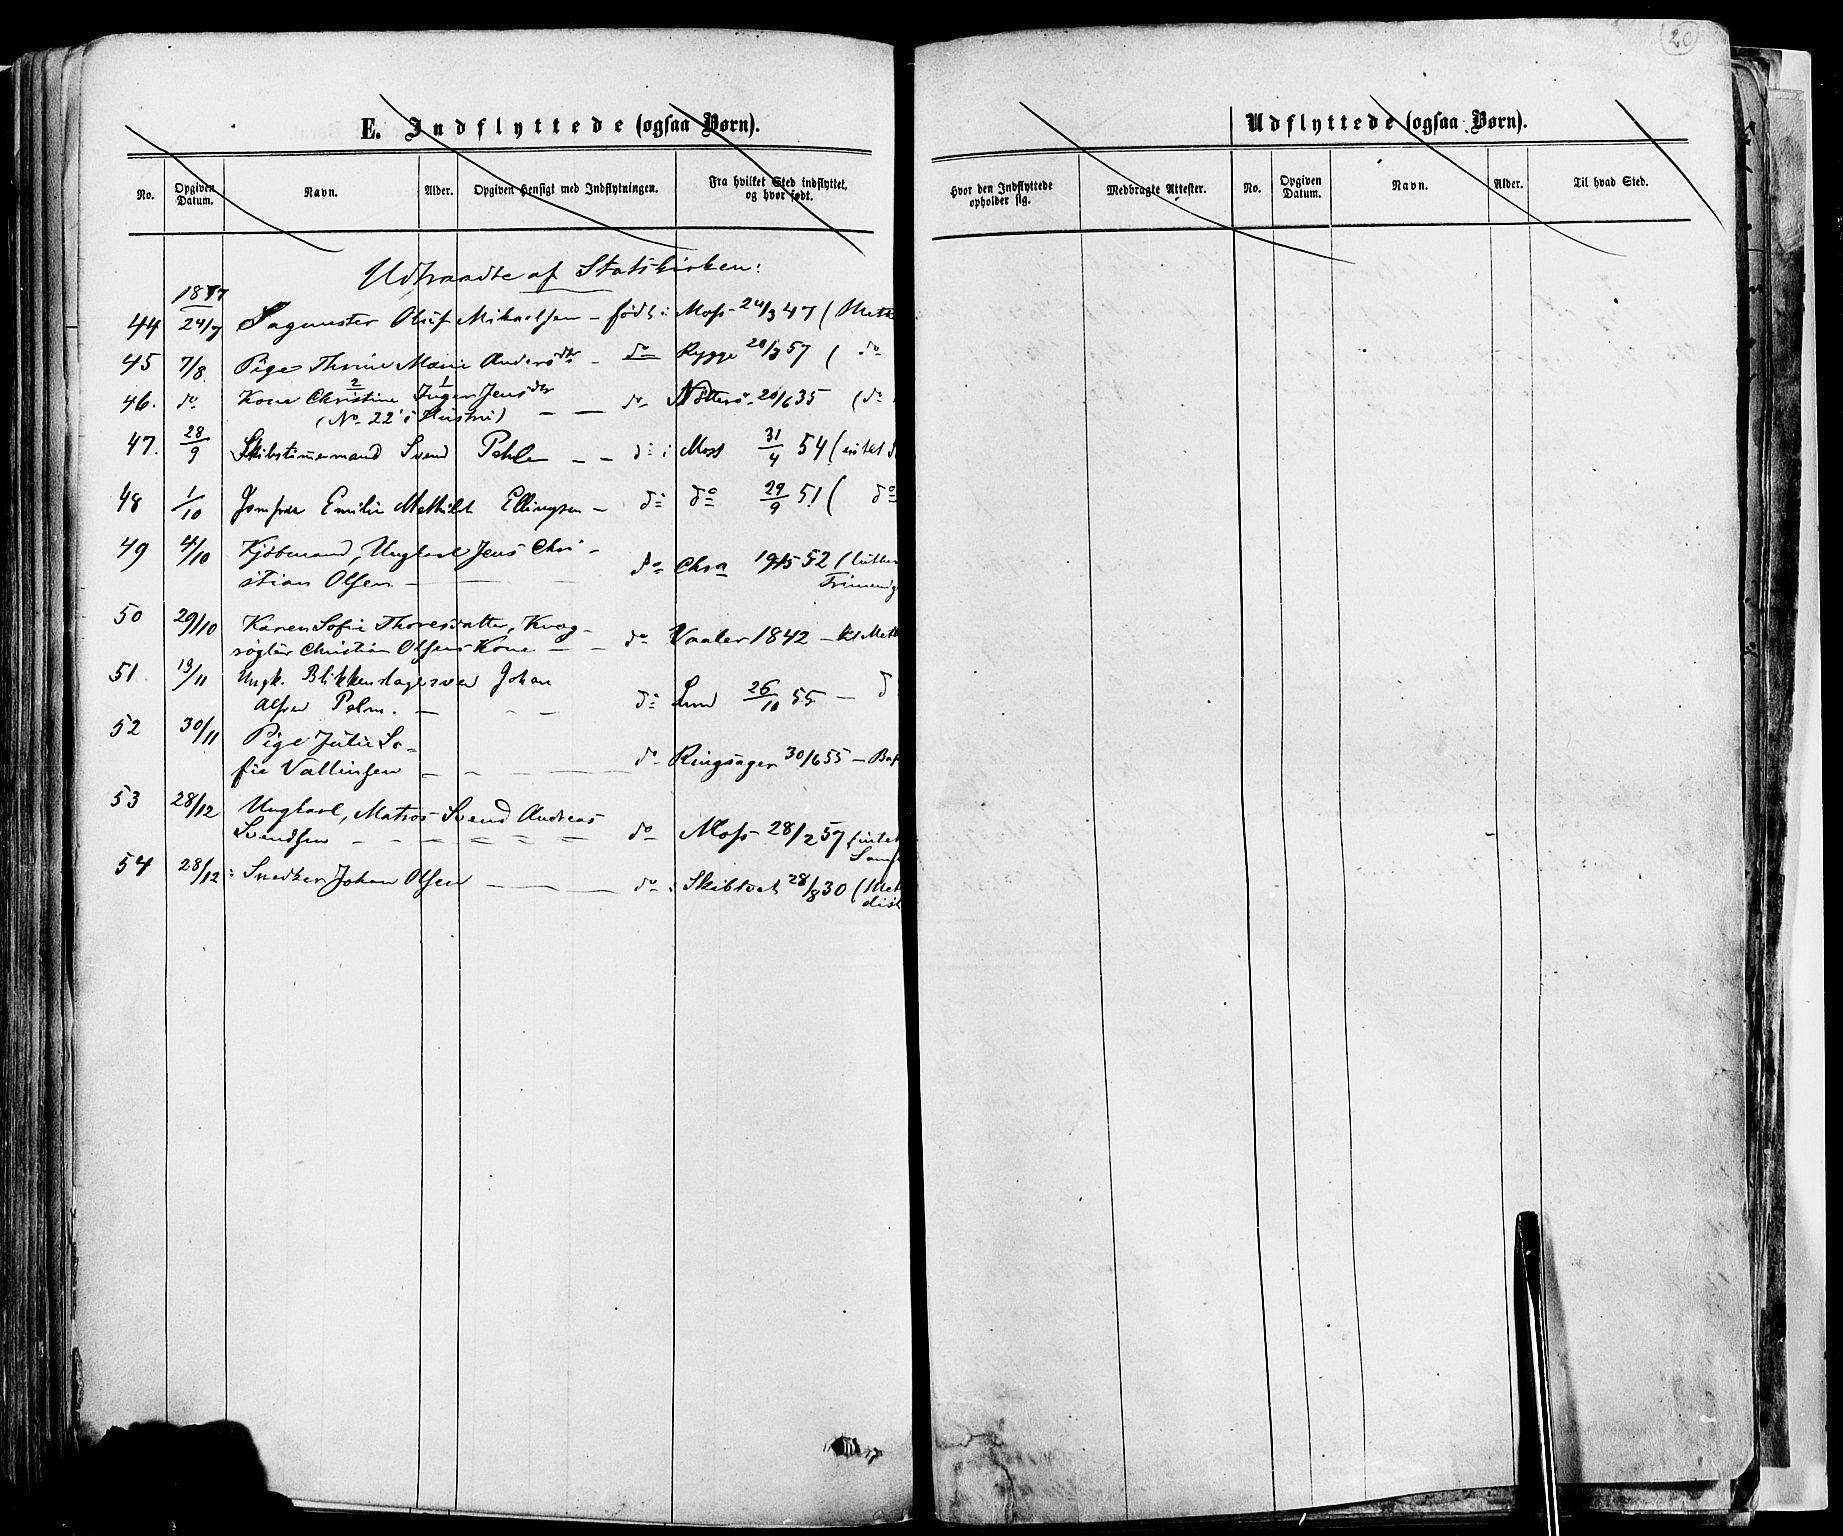 20
E. Indflyttede (ogsaa Børn).
No. Opgiven Datum. Navn. Alder. Opgiven Hensigt med Indflytningen. Fra hvilket Sted indflyttet, og hvor født.
Udtraadte af Statskirken:
1877
44 24/7 Sagmester Oluf Mikaelsen – født i Moss 24/3 47 (Meth
45 7/8 Pige Thrine Marie Andersdtr – do Rygge 20/3 57 ( do
46. do Kone Christine 2 Inger 1 Jensdtr
(No 22 i Hustru) – – do Nøtterø 20/6 35 (do
47. 28/9 Skibstimmermand Svend Pehle – – do i Moss 31/4 54 (intet
48 1/10 Jomfru Emilie Mathilde Ellingsen – do do 29/9 51 ( do
49 4/10 Kjøbmand, Ungkarl Jens Chri-
stian Olsen – do Chra 19/5 52 (luther
Frimenig
50 29/10 Karen Sofie Thoresdatter, Kvag-
søgler Christian Olsens Kone – – do Vaaler 1842 – til Meth
51 13/11 Ungk. Blikkenslagersvend Johan
Alfred Palm. – – – do Lund 26/10 55 – d
52 30/11 Pige Julie So-
fie Vallinsen – – – do Ringsager 30/6 55 – Bap
53 28/12 Ungkarl, Matros Svend Andreas
Svendsen – – – – – do Moss 28/2 57 (intet
Samf
54 28/12 : Snedker Johan Olsen – – – do : Skibtvet 28/8 30 (Met
dist
Udflyttede (ogsaa Børn).
Hvor den Indflyttede opholder sig. Medbragte Attester. No. Opgiven Datum. Navn. Alder. Til hvad Sted.